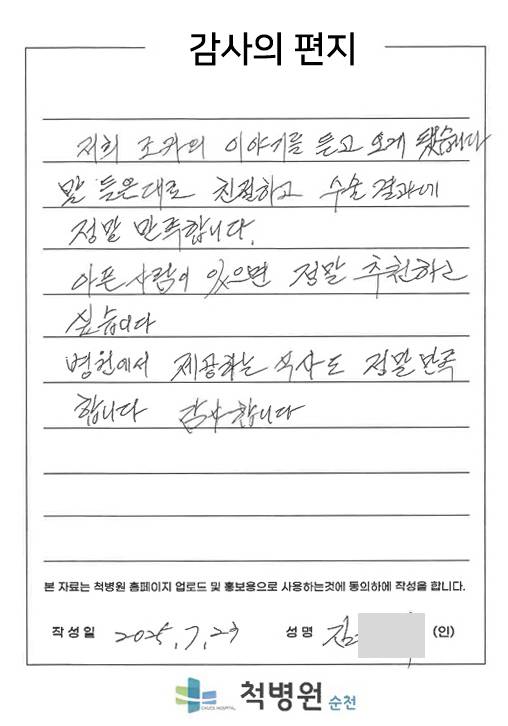 감사의 편지
저희 조카의 이야기를 듣고 오게 됐습니다
말 들은대로 친절하고 수술결과에
정말 만족합니다.
아픈 사람이 있으면 정말 추천하고
싶습니다
병원에서 제공하는 식사도 정말 만족
합니다 감사합니다
본 자료는 척병원 홈페이지 업로드 및 홍보용으로 사용하는것에 동의하에 작성을 합니다.
작성일 2025.7.23 성명 김 (인)
CHUCK HOSPITAL 척병원 순천